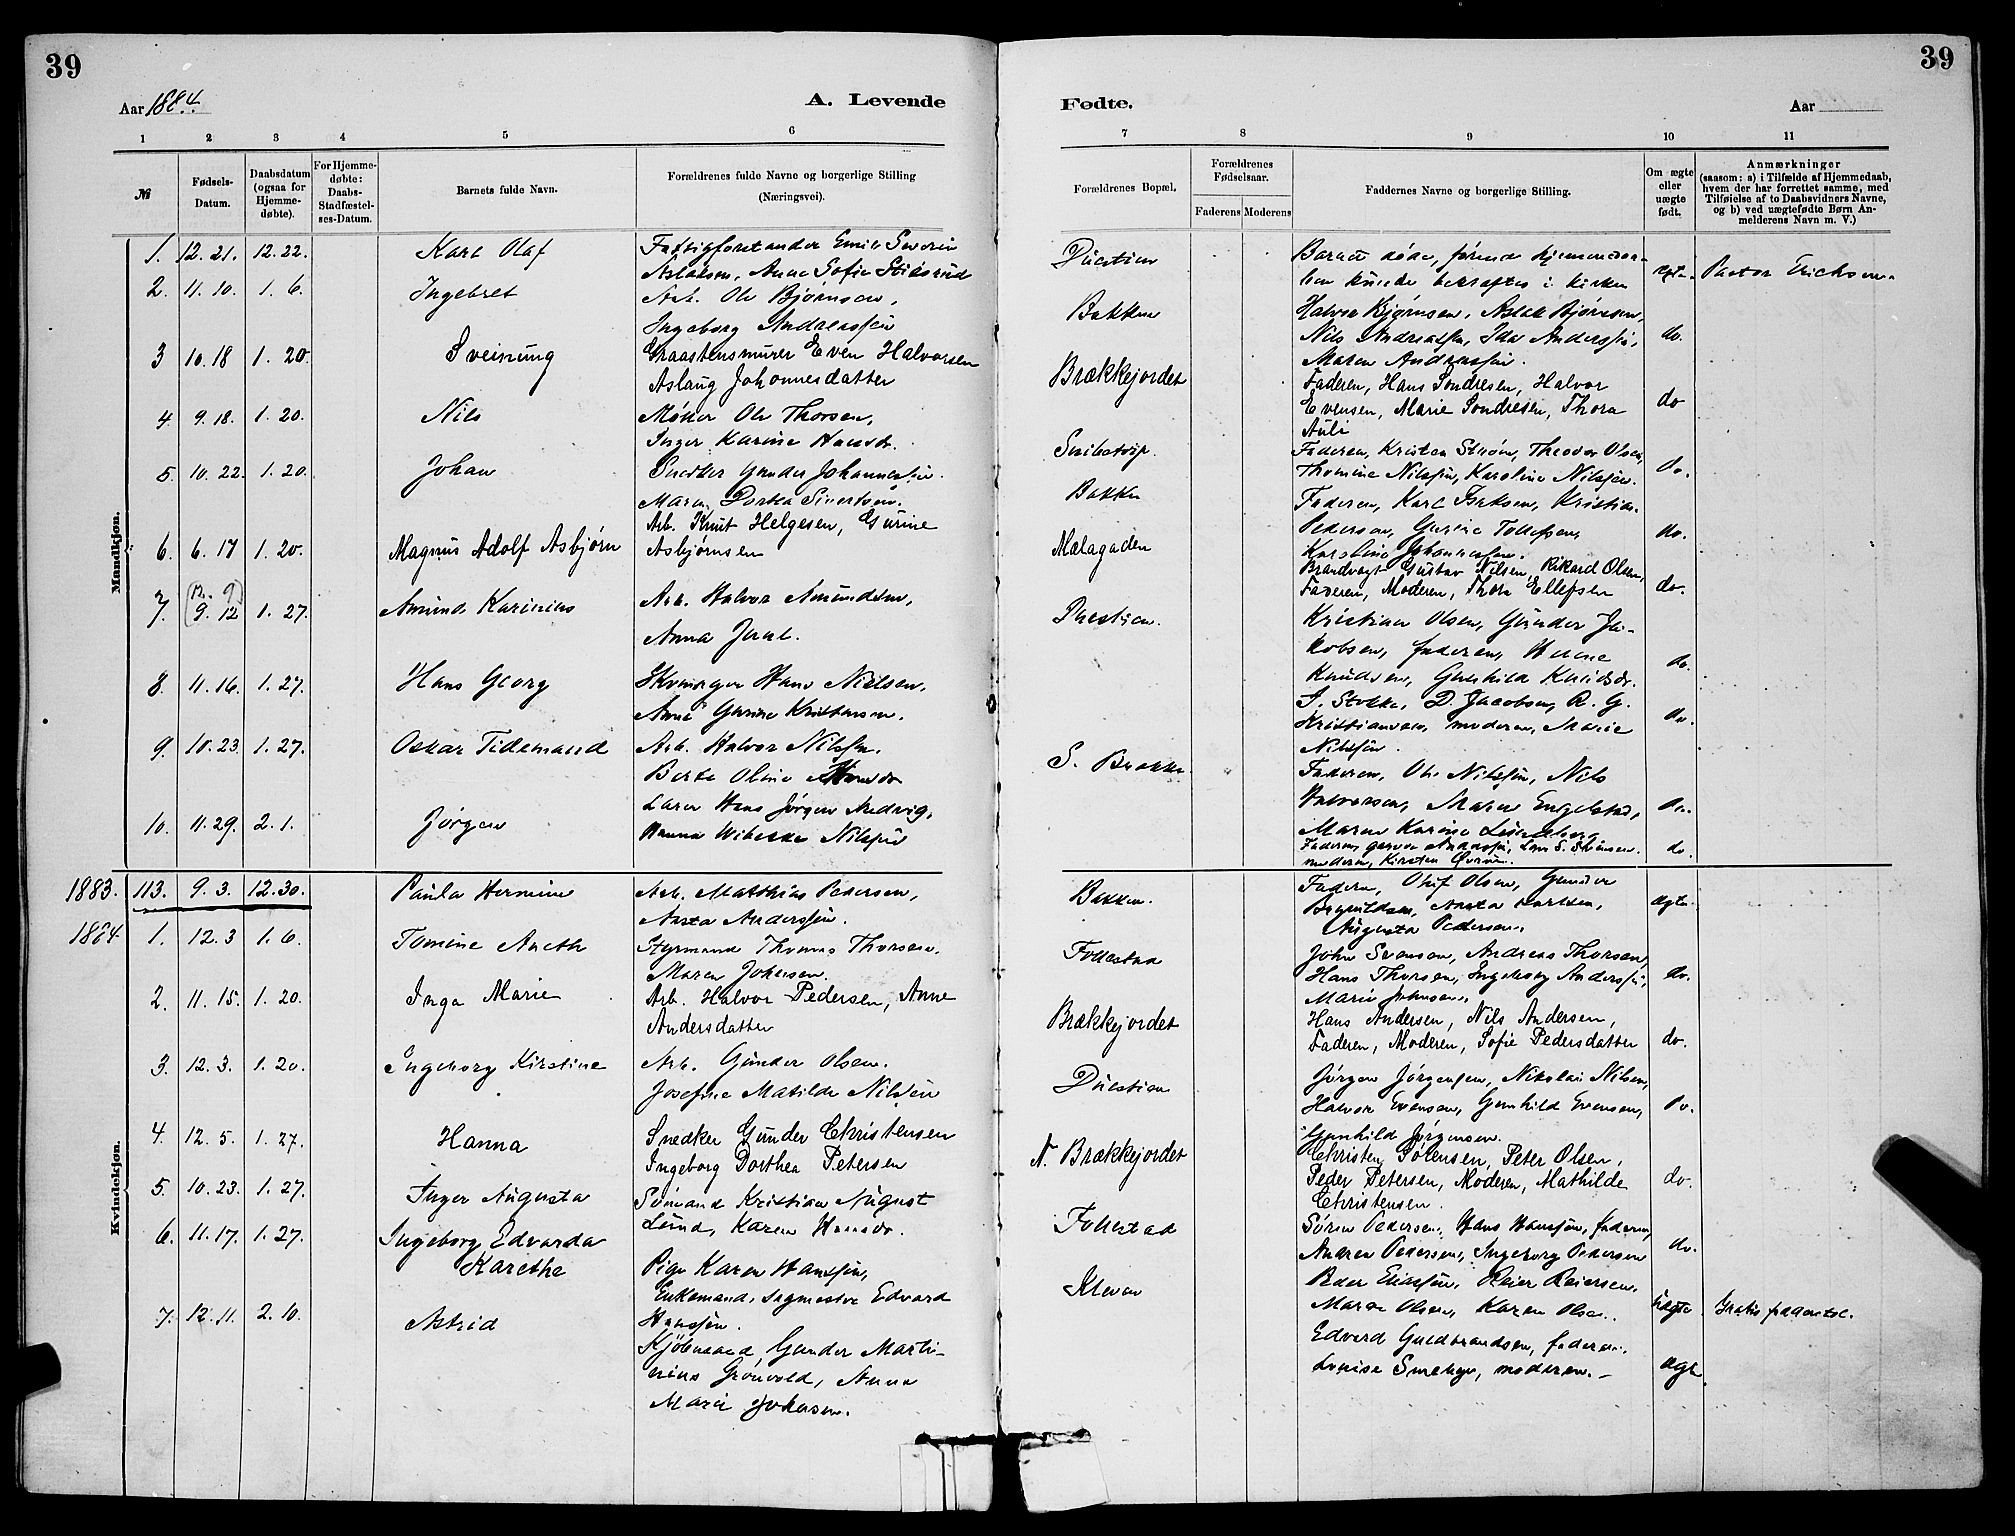 39
39
Aar 1884.
A. Levende
Fødte.
Aar
1 2 3 4 5 6 7 8 9 10 11
№
Fødsels-Datum.
Daabsdatum (ogsaa for Hjemme-døbte).
For Hjemme-døbte: Daabs-Stadfæstel-ses-Datum.
Barnets fulde Navn.
Forældrenes fulde Navne og borgerlige Stilling (Næringsvei).
Forældrenes Bopæl.
Forældrenes Fødselsaar.
Faderens Moderens
Faddernes Navne og borgerlige Stilling.
Om ægte eller uægte født.
Anmærkninger (saasom: a) i Tilfælde af Hjemmedaab, hvem der har forrettet samme, med Tilføielse af to Daabsvidners Navne, og b) ved uægtefødte Børn Anmelderens Navn m. V.)
Mandkjøn.
1. 12. 21. 12. 22. Karl Olaf
Fattigforstander Emil Severin
Aslaksen, Anne Sofie
Barnet døde, førend
ben kunde bekræftes i kirken
ægte. Pastor Erichsen.
2. 11. 10. 1. 6. Ingebret
Arb. Ole Bjørnsen,
Ingeborg Andreassen
Bakken
Halvor Bjørnsen, Aslak Bjørnsen,
Nils Andreassen, Ida
Maren Andreassen.
do.
3 10. 18 1. 20. Sveinung
Graastensmurer Even Halvorsen
Aslaug Johannesdatter
Brækkejordet
Faderen, Hans Sondresen, Halvor
Evensen, Marie Sondresen, Thora
Auli
do
4. 9. 18. 1. 20. Nils
Møller Ole Thorsen,
Inger Karine Hansdr.
Faderen, Kristen Strøm, Theodor Olsen,
Thomine Nilssen, Karoline Nilssen.
do.
5. 10. 22. 1. 20. Johan
Snedker Gunder Johannessen.
Maren Dortea Sivertsen.
Bakken
Faderen, Karl Isaksen, Kristian
Pedersen, Gurine Tollefsen,
Karoline Johannessen.
do.
6. 6. 17 1. 20. Magnus Adolf Asbjørn
Arb. Knut Helgesen, Gurine
Asbjørnsen
Mælagaden
Brandvagt Gustav Nilsen, Rikard Olsen,
Faderen, Moderen, Thora Ellefsen
do.
7. 9. 12 1. 27. Amund Karinius
Arb. Halvor Amundsen,
Anna
Kristian Olsen, Gunder Ja-
kobsen, faderen,
Knudsen, Gunhild
do.
8. 11. 16. 1. 27. Hans Georg
Hans Nielsen,
Anne Gurine Kristensen.
D. Jacobsen, R. G.
Kristiansen, moderen, Marie
Nilssen.
do.
9. 10. 23 1. 27. Oskar Tidemand
Arb. Halvor Nilssen.
Berte Oline
S. Brække
Faderen, Ole Nilssen, Nils
Halvorsen, Maren Engelstad,
Maren Karine
do.
10. 11. 29. 2. 1. Jørgen
Lærer Hans Jørgen
Hanna Wibekke Nilssen
moderen, Kirsten
do.
Kvindekjøn.
1883. 113. 9. 3. 12. 30. Paula Hermine
Arb. Matthias Pedersen,
Aasta Anderssen.
Bakken.
Faderen, Oluf Olsen, Gunder
Aasta Karlsen,
Augusta Pedersen.
ægte.
1884. 1. 12. 3 1. 6. Tomine Aneth
Styrmand Thomas Thorsen.
Maren Johnsen.
Follestad
John Svensen, Andreas Thorsen,
Hans Thorsen, Ingeborg Anderssen,
Marie Johnsen.
do.
2. 11. 15. 1. 20. Inga Marie
Arb. Halvor Pedersen, Anne
Andersdatter
Brækkejordet
Hans Andersen, Nils Andersen,
Faderen, Moderen, Sofie Pedersdatter
do.
3. 12. 3. 1. 20. Ingeborg Kirstine
Arb. Gunder Olsen.
Josefine Matilde Nilsen
Jørgen Jørgensen, Nikolai Nilsen,
Halvor Evensen, Gunhild Evensen,
Gunhild Jørgensen.
do.
4. 12. 5. 1. 27. Hanna
Snedker Gunder Christensen
Ingeborg Dorthea Petersen
N. Brækkejordet
Christen Sørensen, Peter Olsen,
Peder Petersen, Moderen, Mathilde
Christensen.
do.
5. 10. 23. 1. 27. Inger Augusta
Sømand Kristian August
Lund, Karen Hansdr.
Follestad
Søren Pedersen, Hans Hanssen, faderen,
Andrea Pedersen, Ingeborg Pedersen
do.
6. 11. 17. 1. 27. Ingeborg Edvarda
Karethe
Pige Karen Hanssen,
Enkemand, Sagmester Edvard
Hanssen.
Kleven
Peder Eliassen, Reier Reiersen.
Maren Olsen, Karen Olsen.
Uægte
7. 12. 11. 2. 10. Astrid
Kjøbmand Gunder Marti-
nius Grønvold, Anna
Marie Johnsen.
Edvard Guldbrandsen, faderen,
Lovise moderen.
ægte.